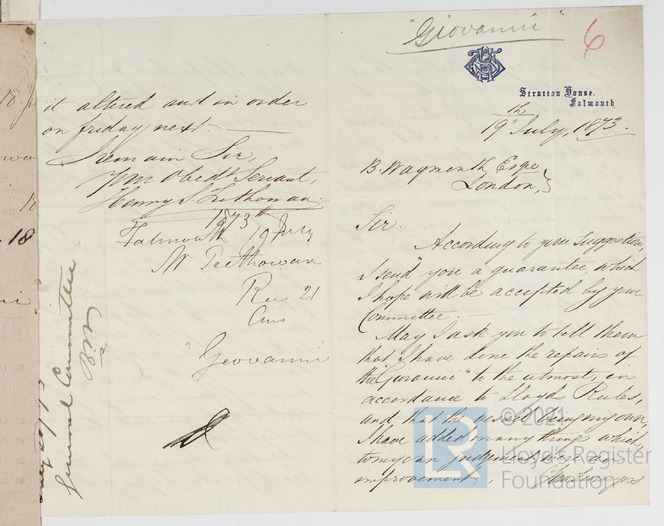 it altered and in order
on friday next. —
I remain Sir,
Your Obedt Servant,
Henry S. Trethowan
1873
Falmouth 19th July
Mr Trethowan
Rec 21
Ans
"Geovanni
General Committee
"Giovanni"
6
Stratton House.
Falmouth
19th July, 1873.
B. Waymouth Esqre
London,
Sir.
According to your suggestion,
I send you a guarantee, which
I hope will be accepted by your
Committee. —
May I ask you to tell them
that I have done the repairs of
the "Giovanni" to the utmost, in
accordance to Lloyds Rules,
and, that the vessel being my own,
I have added many things which,
to my own judgement were an
improvement,
18
© 2021
Lloyd's Register
Foundation
LR